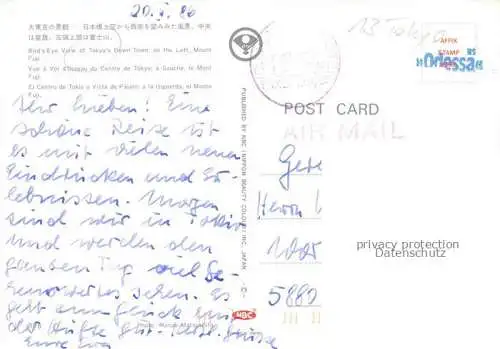 20.X.86
13 Tokyo
大東京の景観
日本橋上空から西南を望みみた風景。中央
は皇居、左端上部は富士山。
Bird's Eye View of Tokyo's Down Town: on the Left, Mount
Fuji.
Vue à Vol d'Oiseau du Centre de Tokyo: à Gauche, le Mont
Fuji.
El Centro de Tokio a Vista de Pájaro: a la Izquierda, el Monte
Fuji.
AFFIX
STAMP
»Odessa«
RS
POST CARD
AIR MAIL
Ihr Lieben! Eine
schöne Reise ist
es mit vielen neuen
Eindrücken und Er-
lebnissen. Morgen
sind wir in Tokio
und werden den
ganzen Tag viel Se-
henswertes sehen. Es
geht uns
der Hitze gut. Liebe Grüsse
Eure Eva
PUBLISHED BY NBC (NIPPON BEAUTY COLOR) INC. JAPAN
-C-
NBC
Herrn
5880
privacy protection
Datenschutz